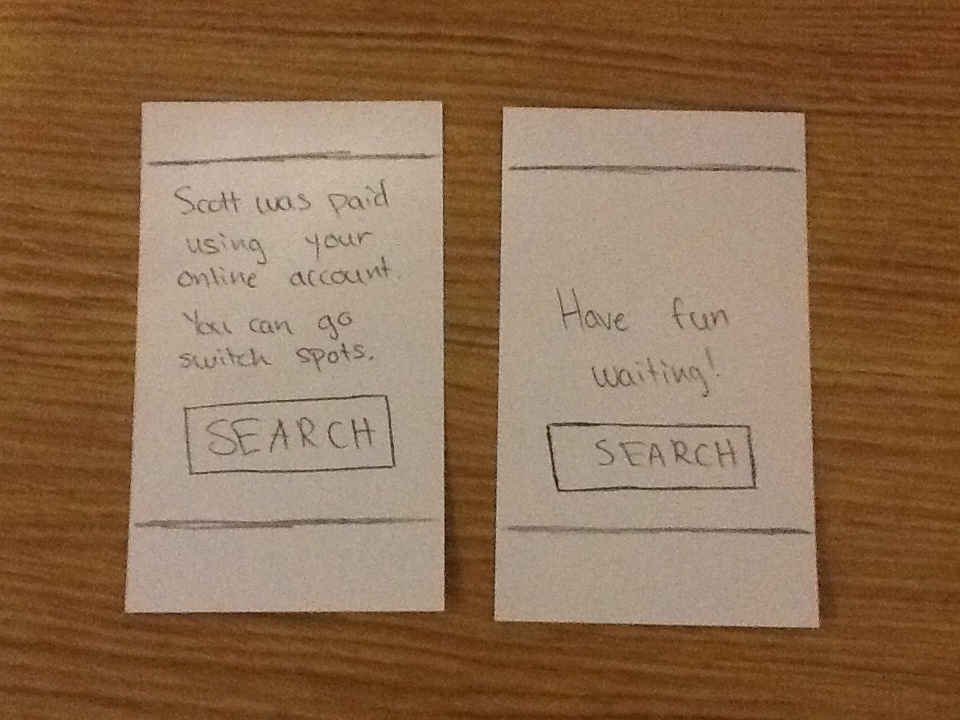 Scott was paid
using your
online account.
You can go
switch spots.
SEARCH
Have fun
waiting!
SEARCH